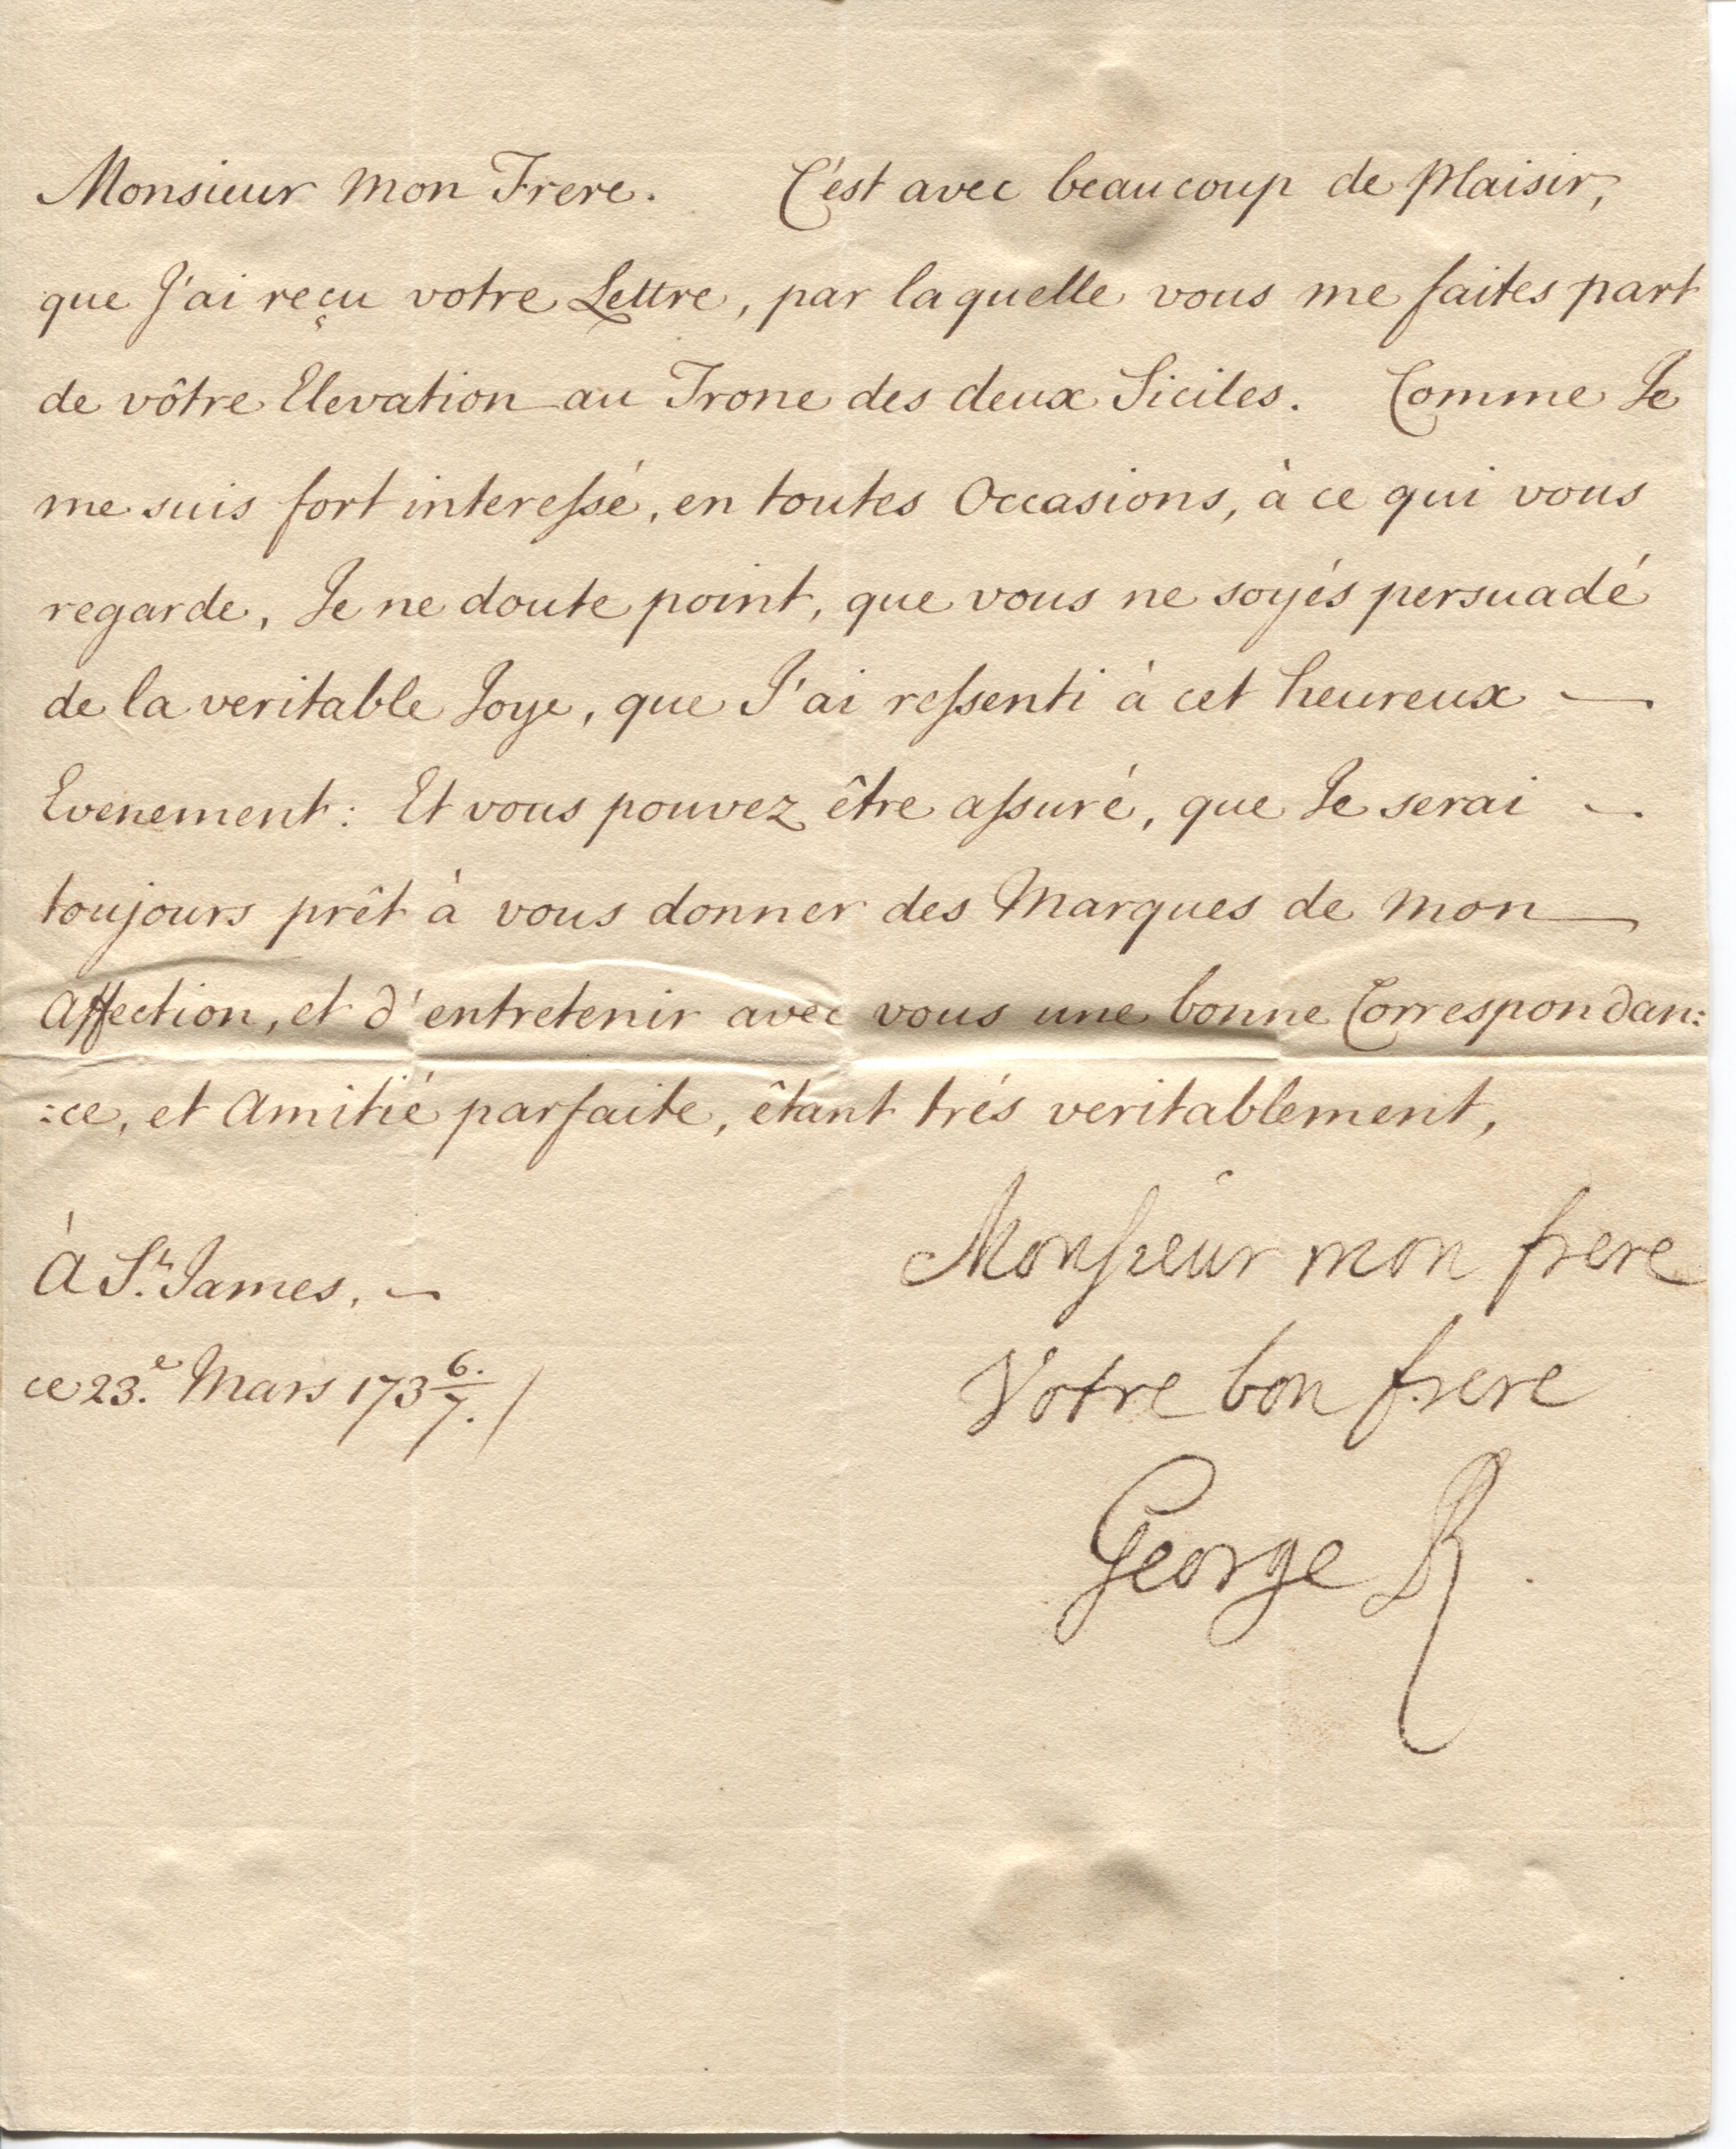 Monsieur Mon Frere. C'est avec beaucoup de Plaisir,
que J'ai reçu votre Lettre, par laquelle vous me faites part
de vôtre Elevation au Trone des deux Siciles. Comme Je
me suis fort interessé, en toutes Occasions, à ce qui vous
regarde, Je ne doute point, que vous ne soyés persuadé
de la veritable Joye, que J'ai ressenti à cet heureux —
Evenement: Et vous pouvez être assuré, que Je serai —
toujours prêt à vous donner des Marques de Mon —
Affection, et d'entretenir avec vous une bonne Correspondan:
:ce, et Amitié parfaite, êtant trés veritablement,
Monsieur mon frere
À St. James, —
Votre bon frere
ce 23.e Mars 173 6./7. /
George R.